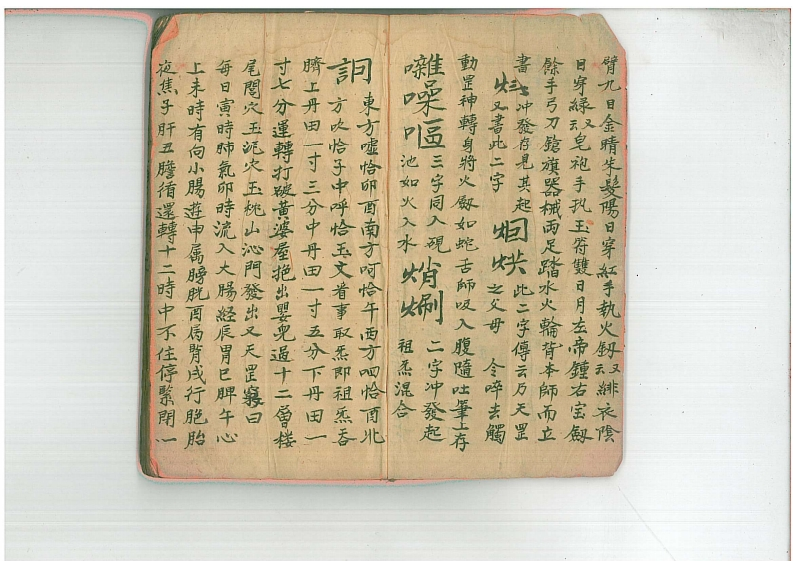 臂九日金睛朱髮陽日穿紅手執火劔又云緋衣陰
日穿綠又云皂袍手执玉符雙日月左帝鍾右宝劔
餘手弓刀鎗旗器械兩足踏水火輪背本師而立
書 冲發存見其起 此二字傳云乃天罡
又書此二字 之父母 令啐去觸
動罡神轉身將火劔如蛇舌師吸入腹隨吐筆上存
雜噪嘔 三字同入硯 二字冲發起
池如火入水 祖炁混合
東方噓恰卯酉南方呵恰午西方呬恰酉北
方吹恰子中呼恰玉文着事取炁即祖炁吞
臍上丹田一寸三分中丹田一寸五分下丹田一
寸七分運轉打破黃婆屋抱出嬰兒過十二曾楼
尾閭穴玉泥穴玉枕山沁門發出又天罡 曰
每日寅時肺氣卯時流入大腸経辰胃巳脾午心
上未時有向小腸遊申属膀胱酉属腎戌行胞胎
夜焦子肝丑膽循還轉十二時中不住停緊閉一